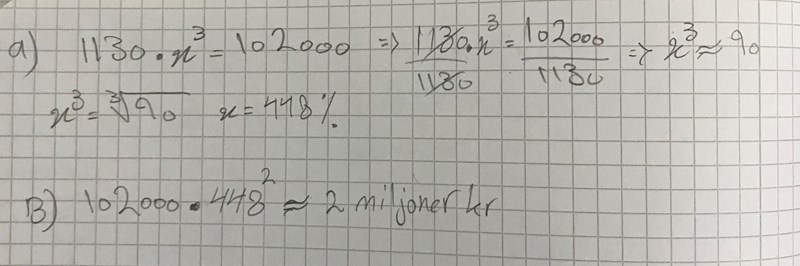 a) 1130·x³ = 102000 => 1130·x³/1130 = 102000/1130 => x³ ≈ 90
x³ = ∛90 x = 448%
B) 102000·448² ≈ 2 miljoner kr